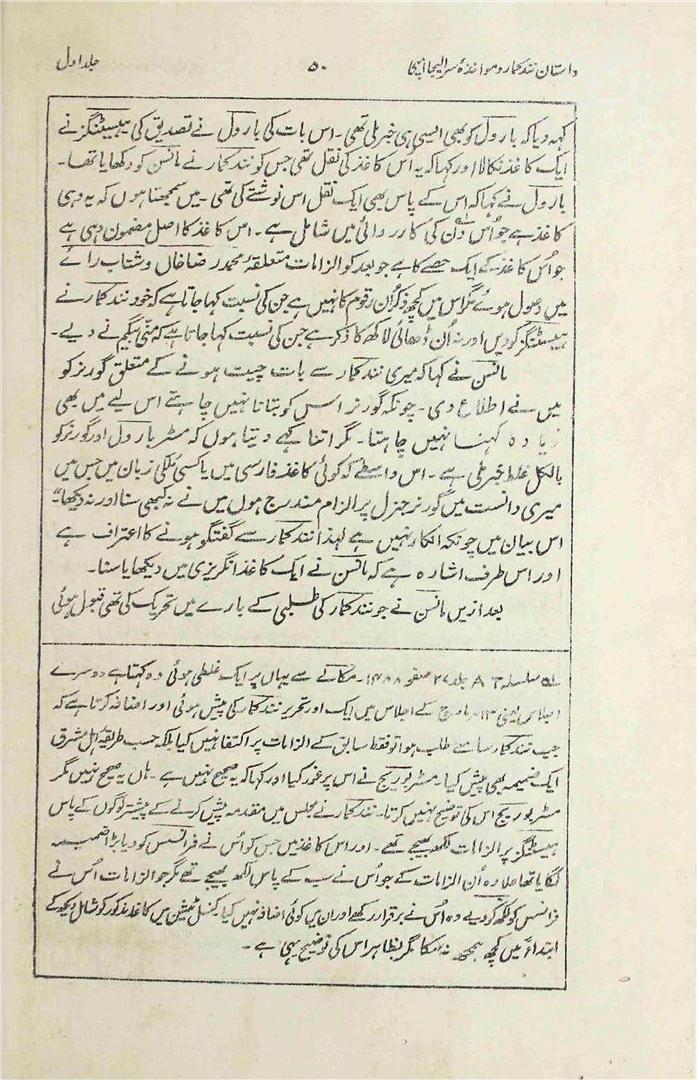 داستان نند کمار و مواخذۂ سر الیجا امپی ۵۰ جلد اول
کہہ دیا کہ بارول کو بھی ایسی ہی خبر ملی تھی۔ اس بات کی بارول نے تصدیق کی ہیسٹنگز نے
ایک کاغذ نکالا اور کہا کہ یہ اُس کاغذ کی نقل تھی جس کو نند کمار نے مانسن کو دکھایا تھا۔
بارول نے کہا کہ اس کے پاس بھی ایک نقل اس نوشتے کی تھی۔ میں سمجھتا ہوں کہ یہ وہی
کاغذ ہے جو اُس دن کی کارروائی میں شامل ہے۔ اس کاغذ کا اصل مضمون وہی ہے
جو اُس کاغذ کے ایک حصے کا ہے جو بعد کو الزامات متعلقۂ محمد رضا خاں و شتاب رائے
میں وصول ہوئے مگر اس میں کچھ ذکر اُن رقوم کا نہیں ہے جن کی نسبت کہا جاتا ہے کہ خود نند کمار نے
ہیسٹنگز کو دیں اور نہ اُن ڈھائی لاکھ کا ذکر ہے جن کی نسبت کہا جاتا ہے کہ منی بیگم نے دیے۔
مانسن نے کہا کہ میری نند کمار سے بات چیت ہونے کے متعلق گورنر کو
میں نے اطلاع دی۔ چونکہ گورنر اسس کو بتانا نہیں چاہتے اس لیے میں بھی
زیادہ کہنا نہیں چاہتا۔ مگر اتنا کہے دیتا ہوں کہ مسٹر بارول اور گورنر کو
بالکل غلط خبر ملی ہے۔ اس واسطے کہ کوئی کاغذ فارسی میں یا کسی ملکی زبان میں جس میں
میری دانست میں گورنر جنرل پر الزام مندرج ہوں میں نے نہ کبھی سنا اور نہ دیکھا"
اس بیان میں چونکہ انکار نہیں ہے لہذا نند کمار سے گفتگو ہونے کا اعتراف ہے
اور اس طرف اشارہ ہے کہ مانسن نے ایک کاغذ انگریزی میں دیکھا یا سنا۔
بعد ازیں مانسن نے جو نند کمار کی طلبی کے بارے میں تحریک کی تھی قبول ہوئی
سلسلہ A جلد ۲۷ صفحہ ۱۴۸۸۔ مکالے سے یہاں پر ایک غلطی ہوئی وہ کہتا ہے دوسرے
اجلاس یعنی ۱۳۔ مارچ کے اجلاس میں ایک اور تحریر نند کمار کی پیش ہوئی اور اضافہ کرتا ہے کہ
جب نند کمار سامنے طلب ہوا تو فقط سابق کے الزامات پر اکتفا نہیں کیا بلکہ حسب طریقۂ اہل مشرق
ایک ضمیمہ بھی پیش کیا۔ مسٹر بوریج نے اس پر غور کیا اور کہا کہ یہ صحیح نہیں ہے۔ ہاں یہ صحیح نہیں مگر
مسٹر بوریج اس کی توضیح نہیں کرتا۔ نند کمار نے مجلس میں مقدمہ پیش کرنے کے پیشتر لوگوں کے پاس
ہیسٹنگز پر الزامات لکھ بھیجے تھے۔ اور اس کاغذ میں جس کو اُس نے فرانسس کو دیا بڑا ضمیمہ
لگایا تھا علاوہ اُن الزامات کے جو اُس نے سب کے پاس لکھ بھیجے تھے مگر جو الزامات اُس نے
فرانسس کو لکھ کر دیے وہ اُس نے برقرار رکھے اور ان میں کوئی اضافہ نہیں کیا کنسل ٹیشن میں کاغذ مذکور کو شامل دیکھ کے
ابتداءً میں کچھ سمجھ نہ سکا مگر بظاہر اس کی توضیح یہی ہے۔